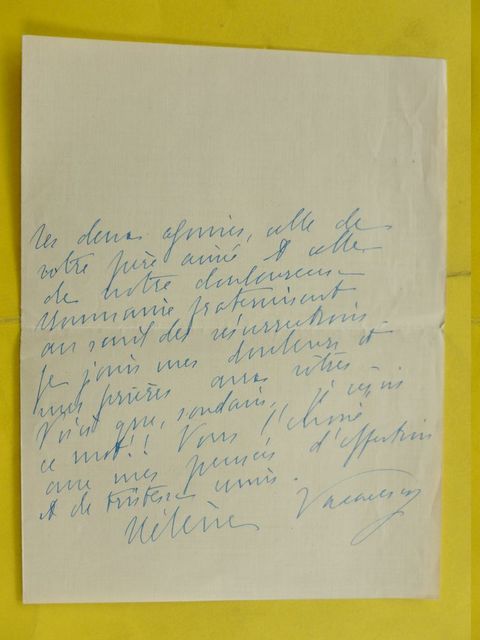 les deux agonies, celle de
votre père aimé et celle
de notre douloureuse
Roumanie fraternisant
au seuil des résurrections
Je joins mes douleurs et
mes prières aux vôtres
Voici que, soudain, j'
ce mot!! Vous l'
avec mes pensées d'affection
et de tristesse unies.
Hélène Vacaresco